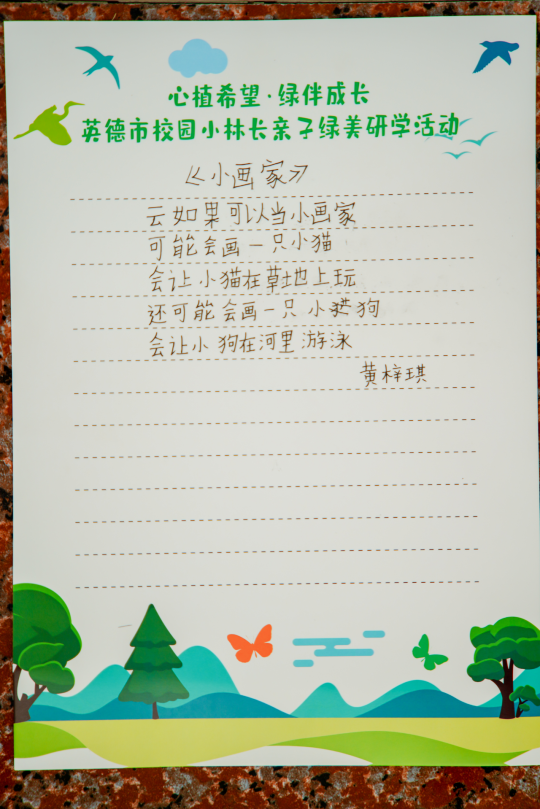 心植希望·绿伴成长
英德市校园小林长亲子绿美研学活动
《小画家》
云如果可以当小画家
可能会画一只小猫
会让小猫在草地上玩
还可能会画一只小狗
会让小狗在河里游泳
黄梓琪